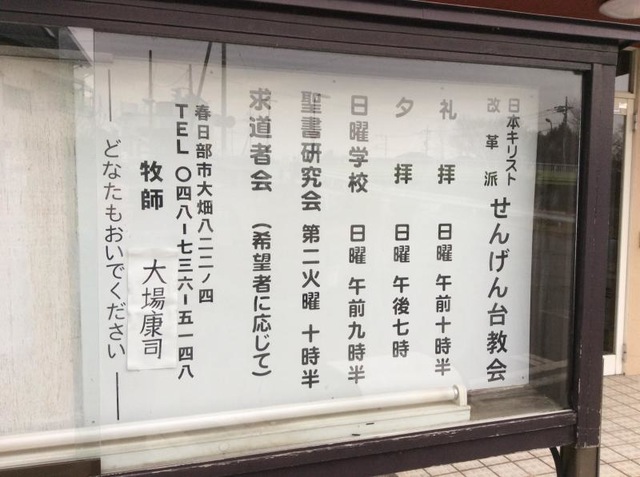 日本キリスト
改革派
せんげん台教会
礼拝 日曜 午前十時半
夕拝 日曜 午後七時
日曜学校 日曜 午前九時半
聖書研究会 第二火曜 十時半
求道者会 (希望者に応じて)
春日部市大畑八二二ノ四
TEL〇四八-七三六-五一四八
牧師 大場康司
――どなたもおいでください――